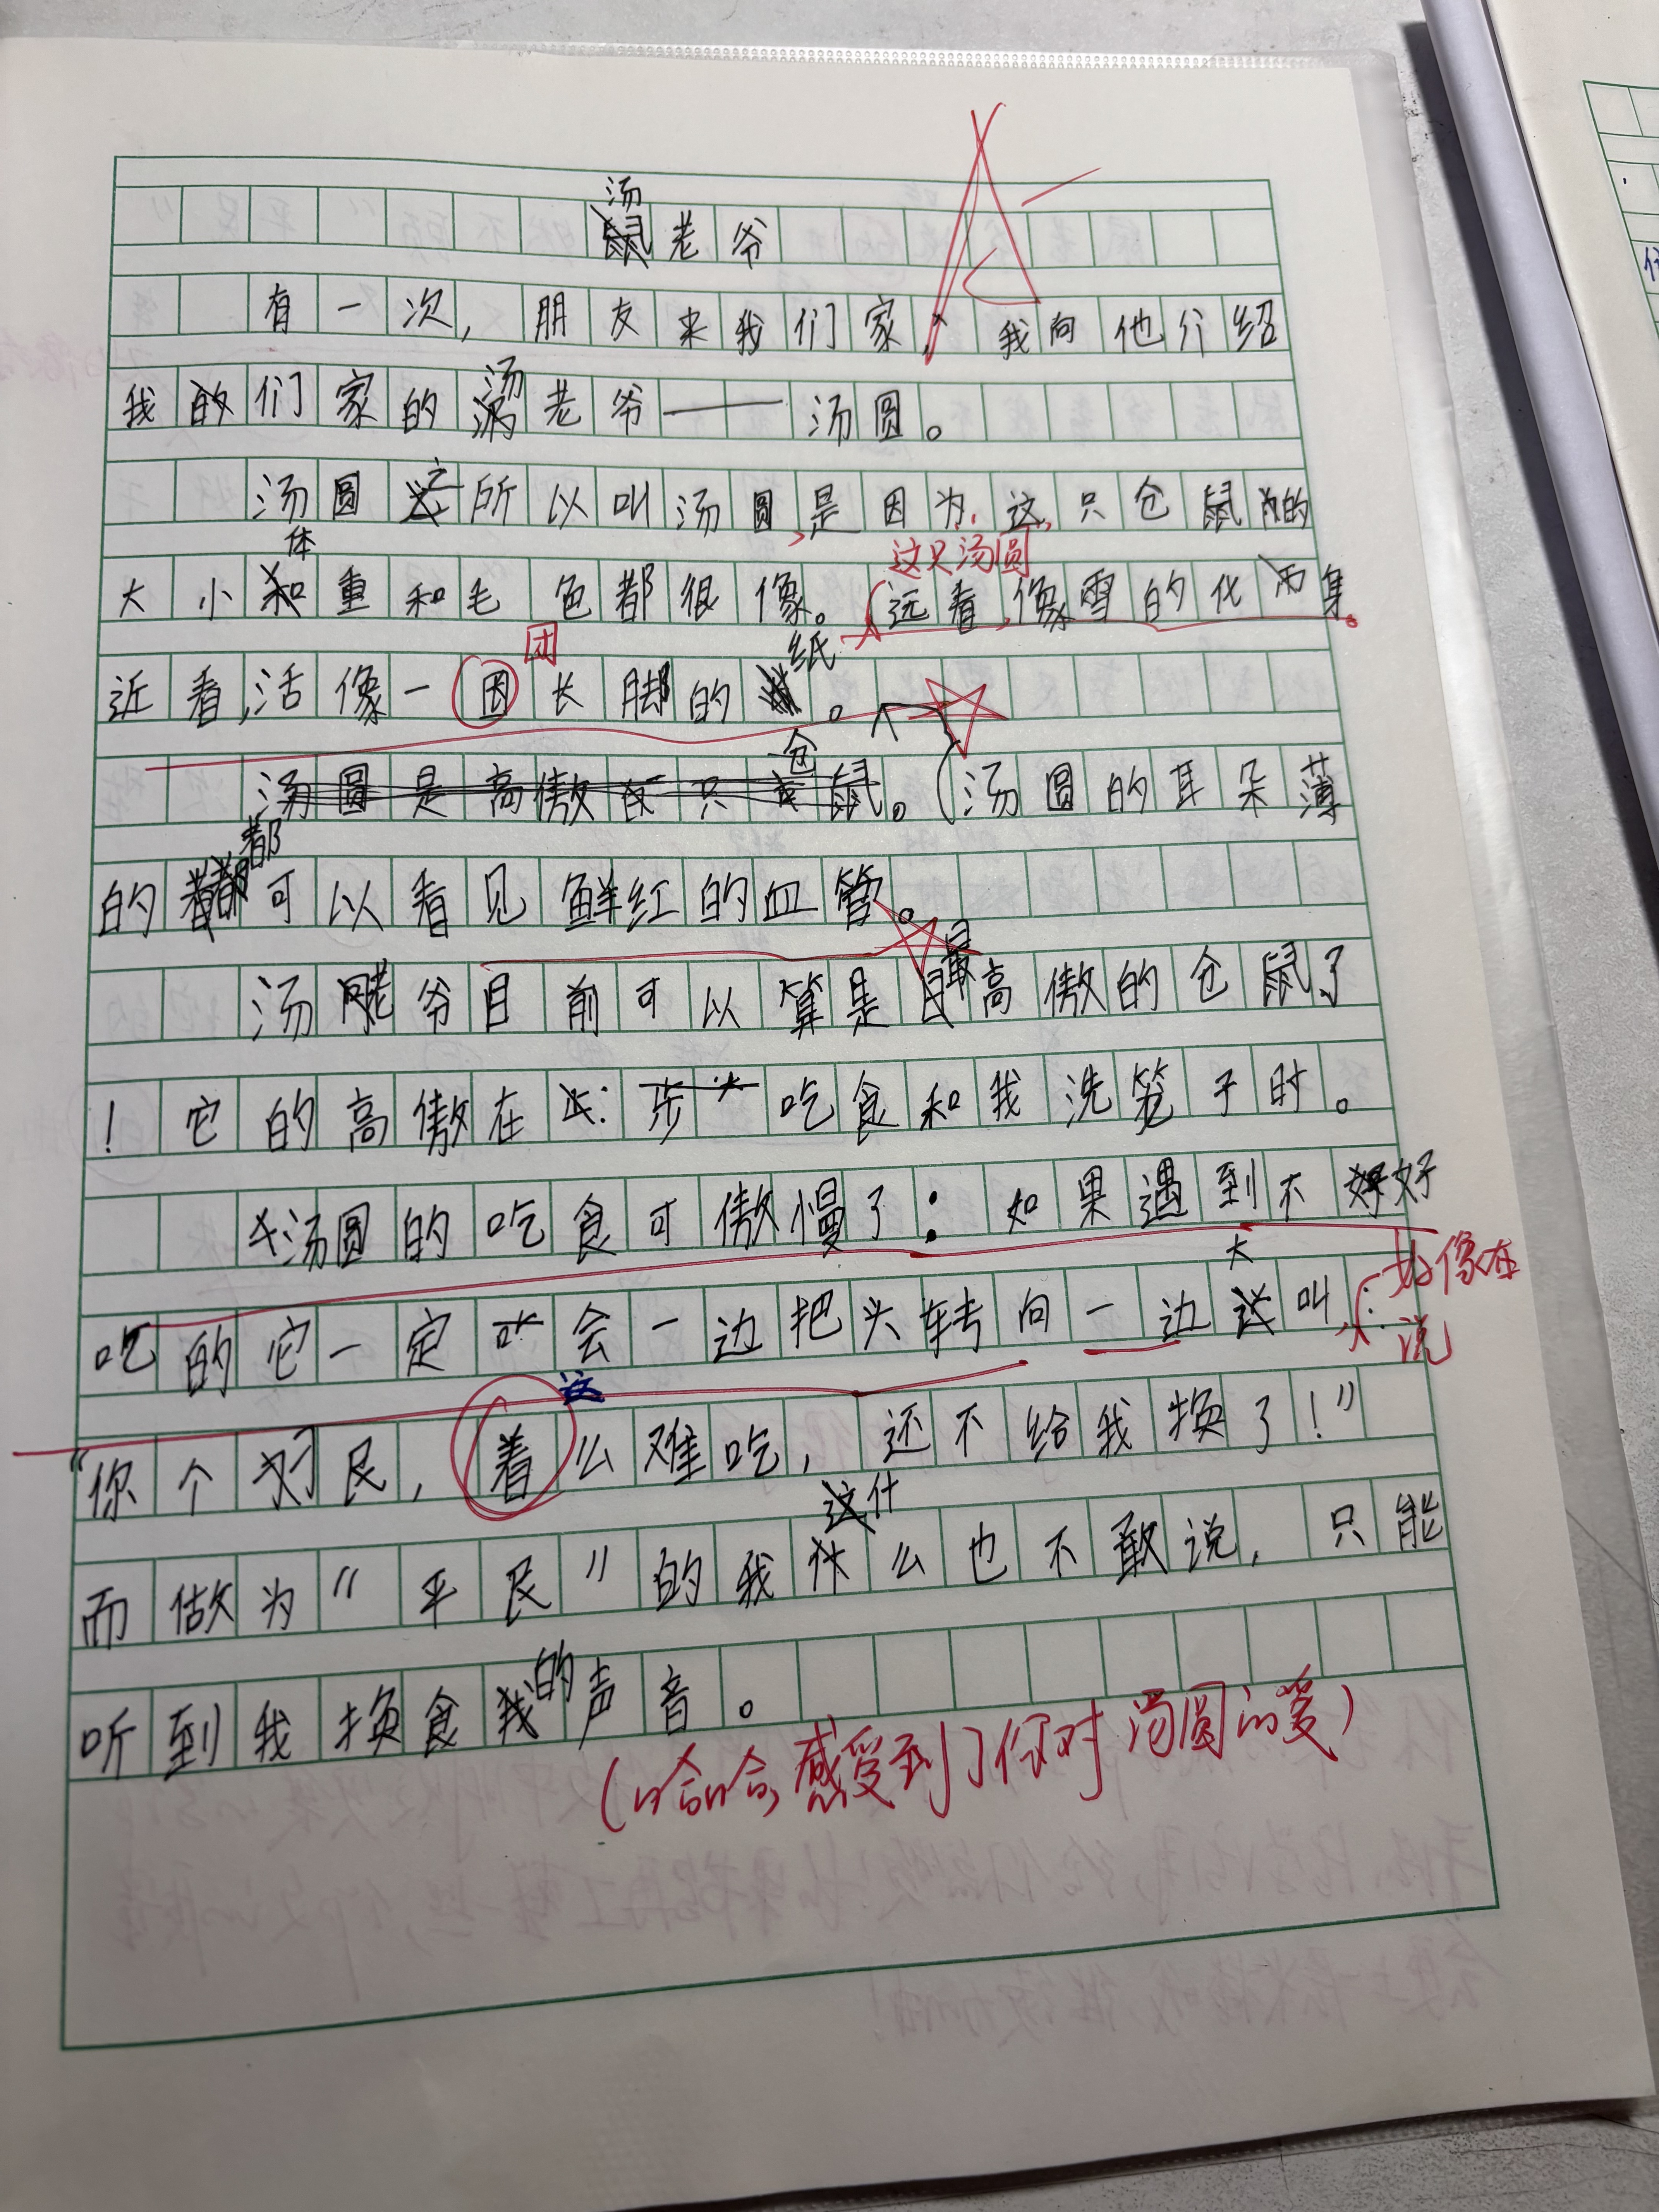 汤老爷
有一次，朋友来我们家，我向他介绍
我们家的汤老爷——汤圆。
汤圆之所以叫汤圆，是因为，这，只仓鼠的
大小体重和毛色都很像。远看，像雪的化身。
这只汤圆
近看，活像一团长脚的纸。
团
汤圆是高傲的只仓鼠。（汤圆的耳朵薄
的都可以看见鲜红的血管。
汤老爷目前可以算是最高傲的仓鼠了
！它的高傲在吃食和我洗笼子时。
汤圆的吃食可傲慢了：如果遇到不好
吃的它一定会一边把头转向一边大叫：
好像在说
“你个民，着么难吃，还不给我换了！”
这
而做为“平民”的我什么也不敢说，只能
听到我换食的声音。
（哈哈，感受到了你对汤圆的爱）